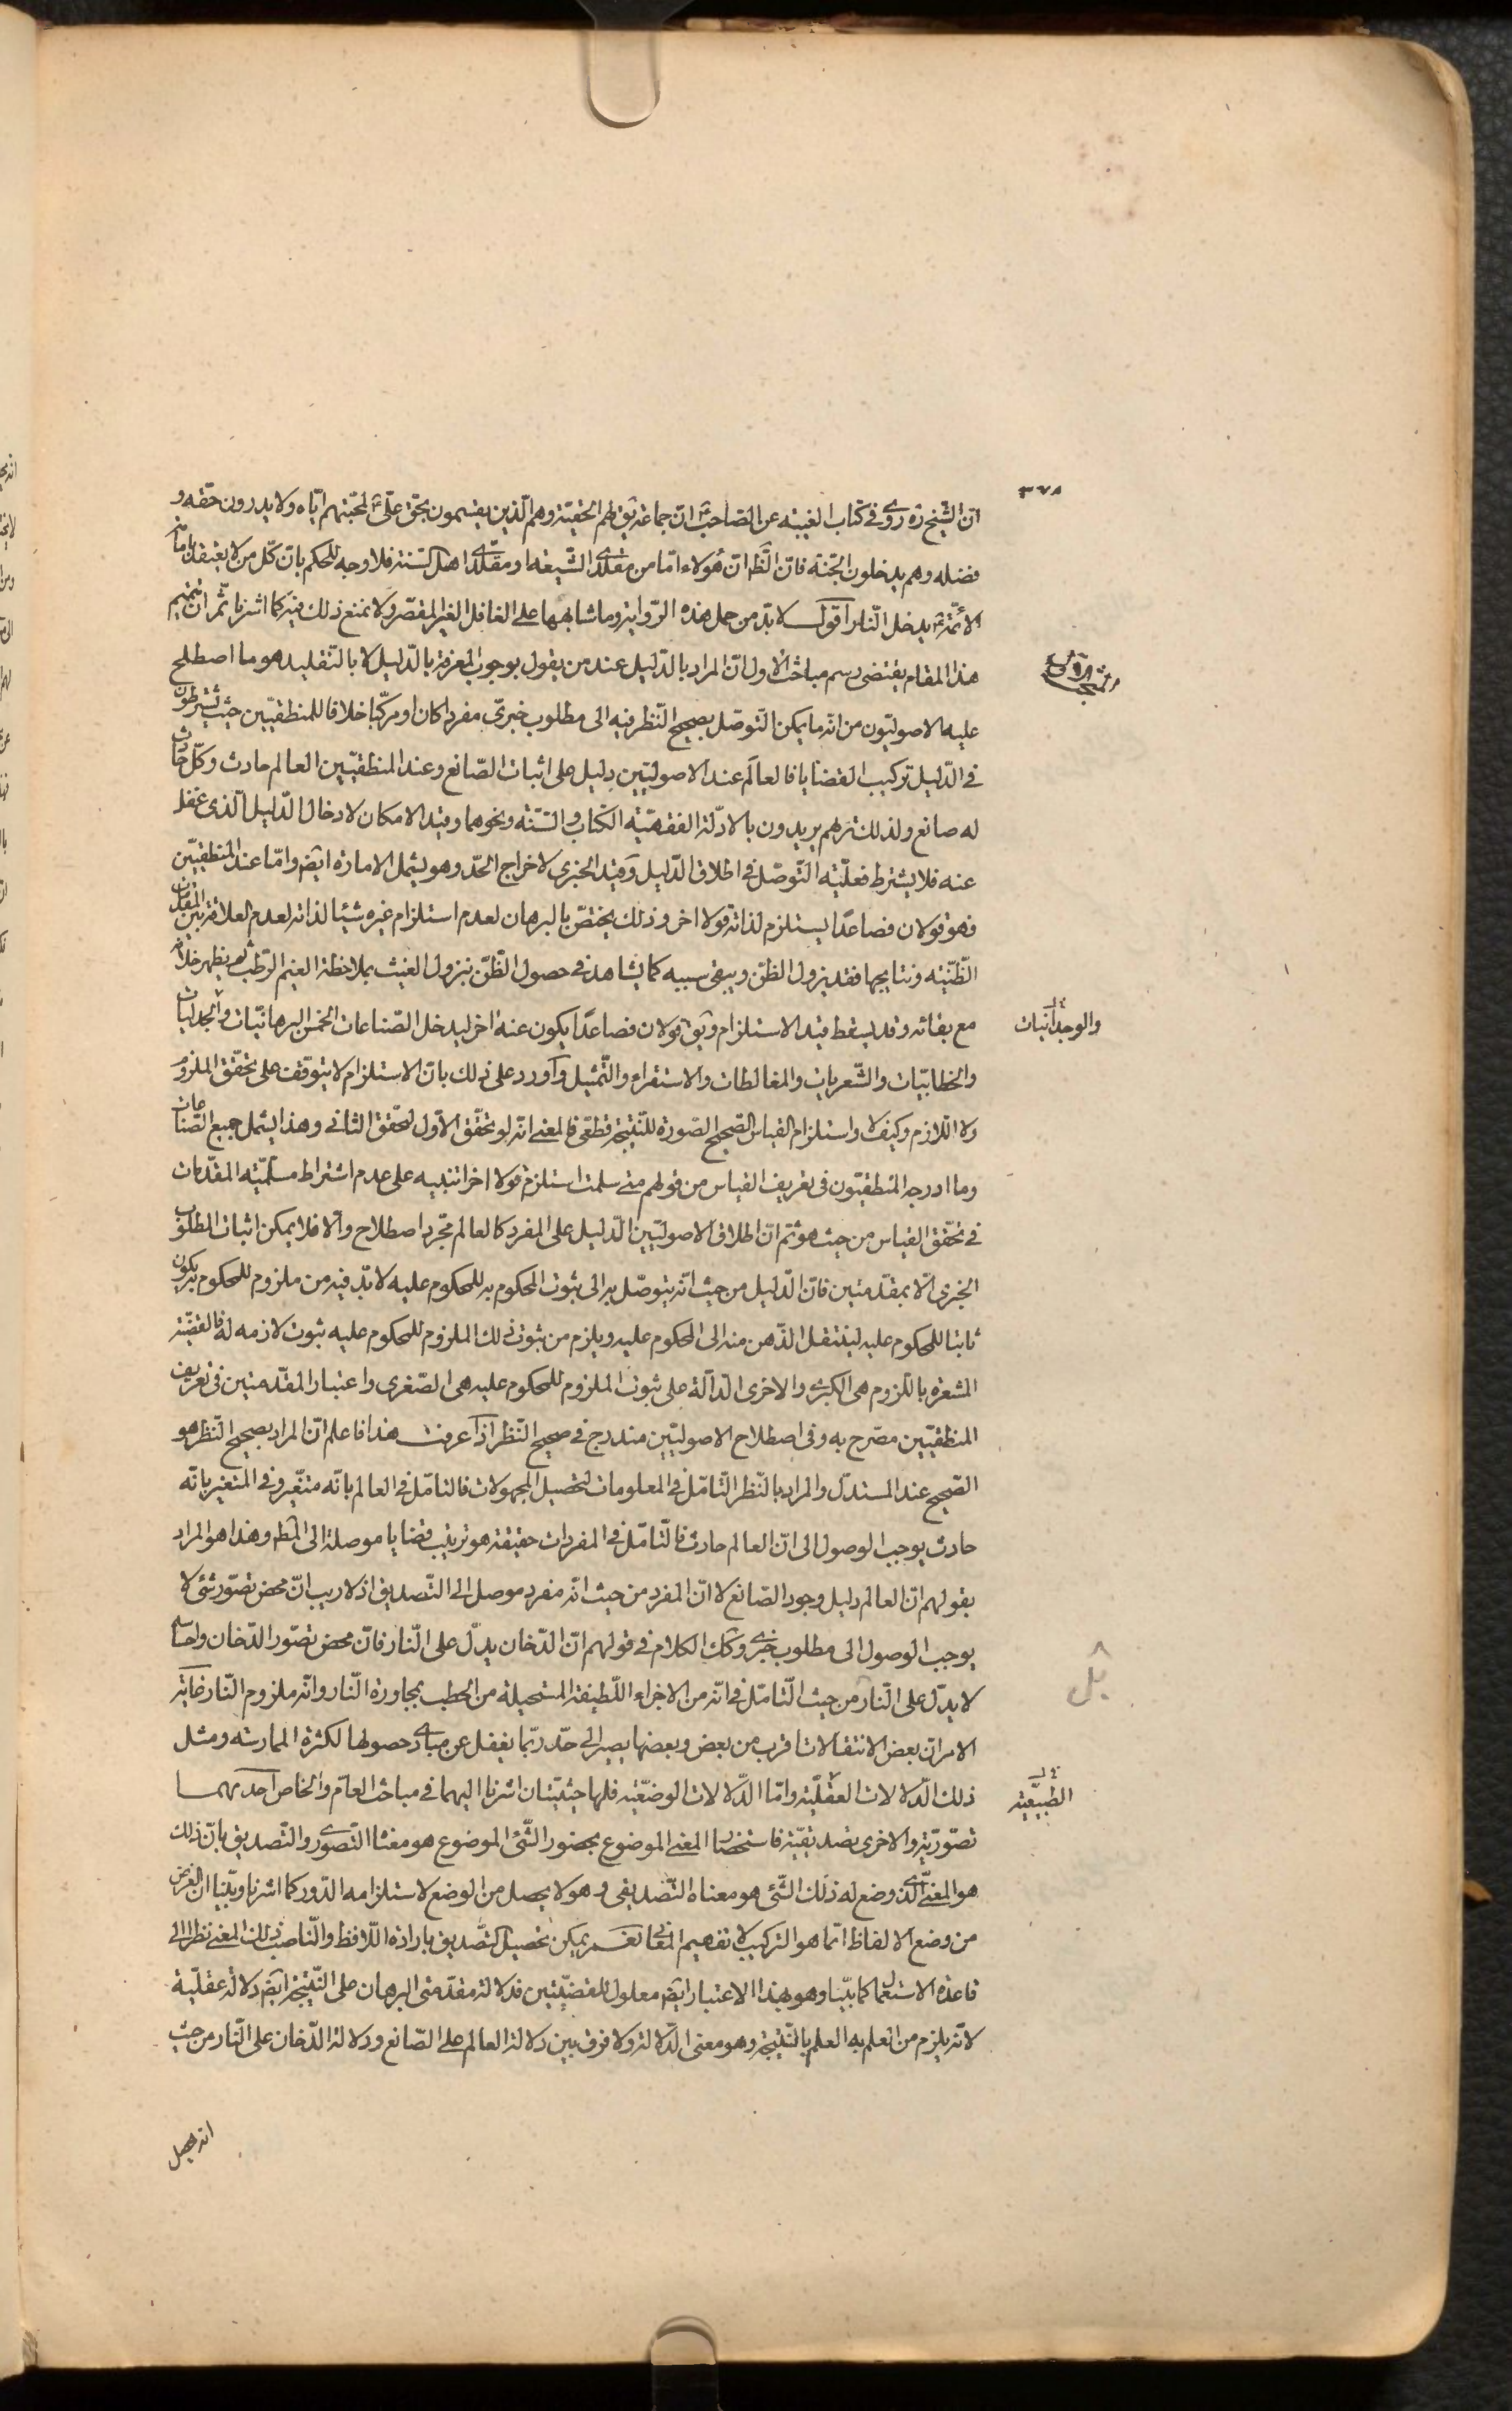 ٣٧٨
ان الشيخ ره روى فى كتاب الغيبة عن الصاحب ع ان جماعة يق لهم الحقية وهم الذين يقسمون بحق على ع لمحبتهم اياه ولا يدرون حقه و
فضله وهم يدخلون الجنة فان الظ ان هؤلاء اما من مقلدى الشيعة او مقلدى اهل السنة فلا وجه للحكم بان كل من لا يعتقد بامامة
الأئمة ع يدخل النار اقول لا بد من حمل هذه الرواية وما شابهها على الغافل الغير المقصر ولا نمنع ذلك فيه كما اشرنا ثم ان تتميم
هذا المقام يقتضى رسم مباحث الاول ان المراد بالدليل عند من يقول بوجوب المعرفة بالدليل لا بالتقليد هو ما اصطلح
عليه الاصوليون من انه ما يمكن التوصل بصحيح النظر فيه الى مطلوب خبرى مفردا كان او مركبا خلافا للمنطقيين حيث يشترطون
فى الدليل تركيب القضايا فالعالم عند الاصوليين دليل على اثبات الصانع وعند المنطقيين العالم حادث وكل حادث
له صانع ولذلك تريهم يريدون بالادلة الفقهية الكتاب والسنة ونحوهما وقيد الامكان لادخال الدليل الذى غفل
عنه فلا يشترط فعلية التوصل فى اطلاق الدليل وقيد الخبرى لاخراج الحد وهو يشمل الامارة ايض واما عند المنطقيين
فهو قولان فصاعدا يستلزم لذاته قولا اخر وذلك يختص بالبرهان لعدم استلزام غيره شيئا لذاته لعدم العلاقة بين المقدمات
الظنية ونتايجها فقد يزول الظن ويبقى سببه كما يشاهد فى حصول الظن بنزول الغيث بملاحظة الغيم الرطب ثم يظهر خلافه
مع بقائه وقد يسقط قيد الاستلزام ويق قولان فصاعدا يكون عنه اخر ليدخل الصناعات الخمس البرهانيات والجدليات
والوجدانيات
والخطابيات والشعريات والمغالطات والاستقراء والتمثيل واورد على ذلك بان الاستلزام لا يتوقف على تحقق الملزوم
ولا اللازم وكيف لا واستلزام القياس الصحيح الصورة للنتيجة قطعى فالمعنى انه لو تحقق الاول لتحقق الثانى وهذا يشمل جميع الصناعات
وما ادرجه المنطقيون فى تعريف القياس من قولهم متى سلمت استلزم قولا اخر تنبيه على عدم اشتراط مسلمية المقدمات
فى تحقق القياس من حيث هو ثم ان اطلاق الاصوليين الدليل على المفرد كالعالم مجرد اصطلاح والا فلا يمكن اثبات المطلوب
الخبرى الا بمقدمتين فان الدليل من حيث انه يتوصل به الى ثبوت المحكوم به للمحكوم عليه لا بد فيه من ملزوم للمحكوم به يكون
ثابتا للمحكوم عليه لينتقل الذهن منه الى المحكوم عليه ويلزم من ثبوت ذلك الملزوم للمحكوم عليه ثبوت لازمه له فالقضية
المشعرة باللزوم هى الكبرى والاخرى الدالة على ثبوت الملزوم للمحكوم عليه هى الصغرى واعتبار المقدمتين فى تعريف
المنطقيين مصرح به وفى اصطلاح الاصوليين مندرج فى صحيح النظر اذا عرفت هذا فاعلم ان المراد بصحيح النظر هو
الصحيح عند المستدل والمراد بالنظر التامل فى المعلومات لتحصيل المجهولات فالتامل فى العالم بانه متغير وفى المتغير بانه
حادث يوجب الوصول الى ان العالم حادث فالتامل فى المفردات حقيقة هو ترتيب قضايا موصلة الى المط وهذا هو المراد
بقولهم ان العالم دليل وجود الصانع لا ان المفرد من حيث انه مفرد موصل الى التصديق اذ لا ريب ان محض تصور شئ لا
يوجب الوصول الى مطلوب خبرى وكك الكلام فى قولهم ان الدخان يدل على النار فان محض تصور الدخان واحساسه
لا يدل على النار من حيث التامل فى انه من الاجزاء اللطيفة المستحيلة من الحطب بمجاورة النار وانه ملزوم النار غاية
بل
الامر ان بعض الانتقالات اقرب من بعض وبعضها يصير الى حد ربما يغفل عن مبادى حصولها لكثرة الممارسة ومثل
ذلك الدلالات العقلية واما الدلالات الوضعية فلها حيثيتان اشرنا اليهما فى مباحث العام والخاص احديهما
الطبيعية
تصورية والاخرى تصديقية فاستحضار المعنى الموضوع بحضور الشئ الموضوع هو مقتضا التصورى والتصديق بان ذلك
هو المعنى الذى وضع له ذلك الشئ هو معناه التصديقى وهو لا يحصل من الوضع لاستلزامه الدور كما اشرنا وبينا ان الغرض
من وضع الالفاظ انما هو التركيب لا تفهيم المعانى نعم يمكن تحصيل التصديق بارادة اللافظ والناصب ذلك المعنى نظرا الى
قاعدة الاستعمال كما بينا وهو بهذا الاعتبار ايض معلول للقضيتين فدلالة مقدمتى البرهان على النتيجة ايض دلالة عقلية
لانه يلزم من العلم به العلم بالنتيجة وهو معنى الدلالة ولا فرق بين دلالة العالم على الصانع ودلالة الدخان على النار من حيث
انه يحصل